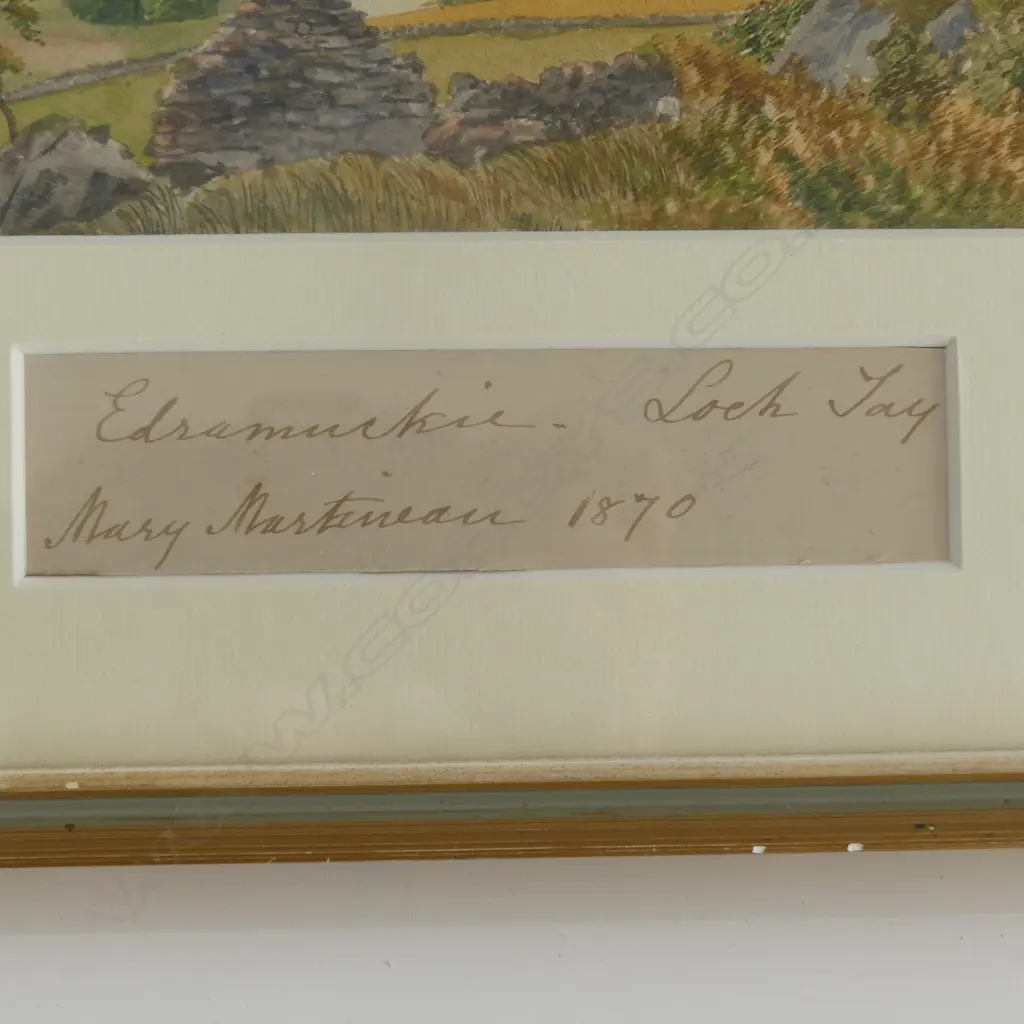 Edramuckie - Loch Tay
Mary Martineau 1870